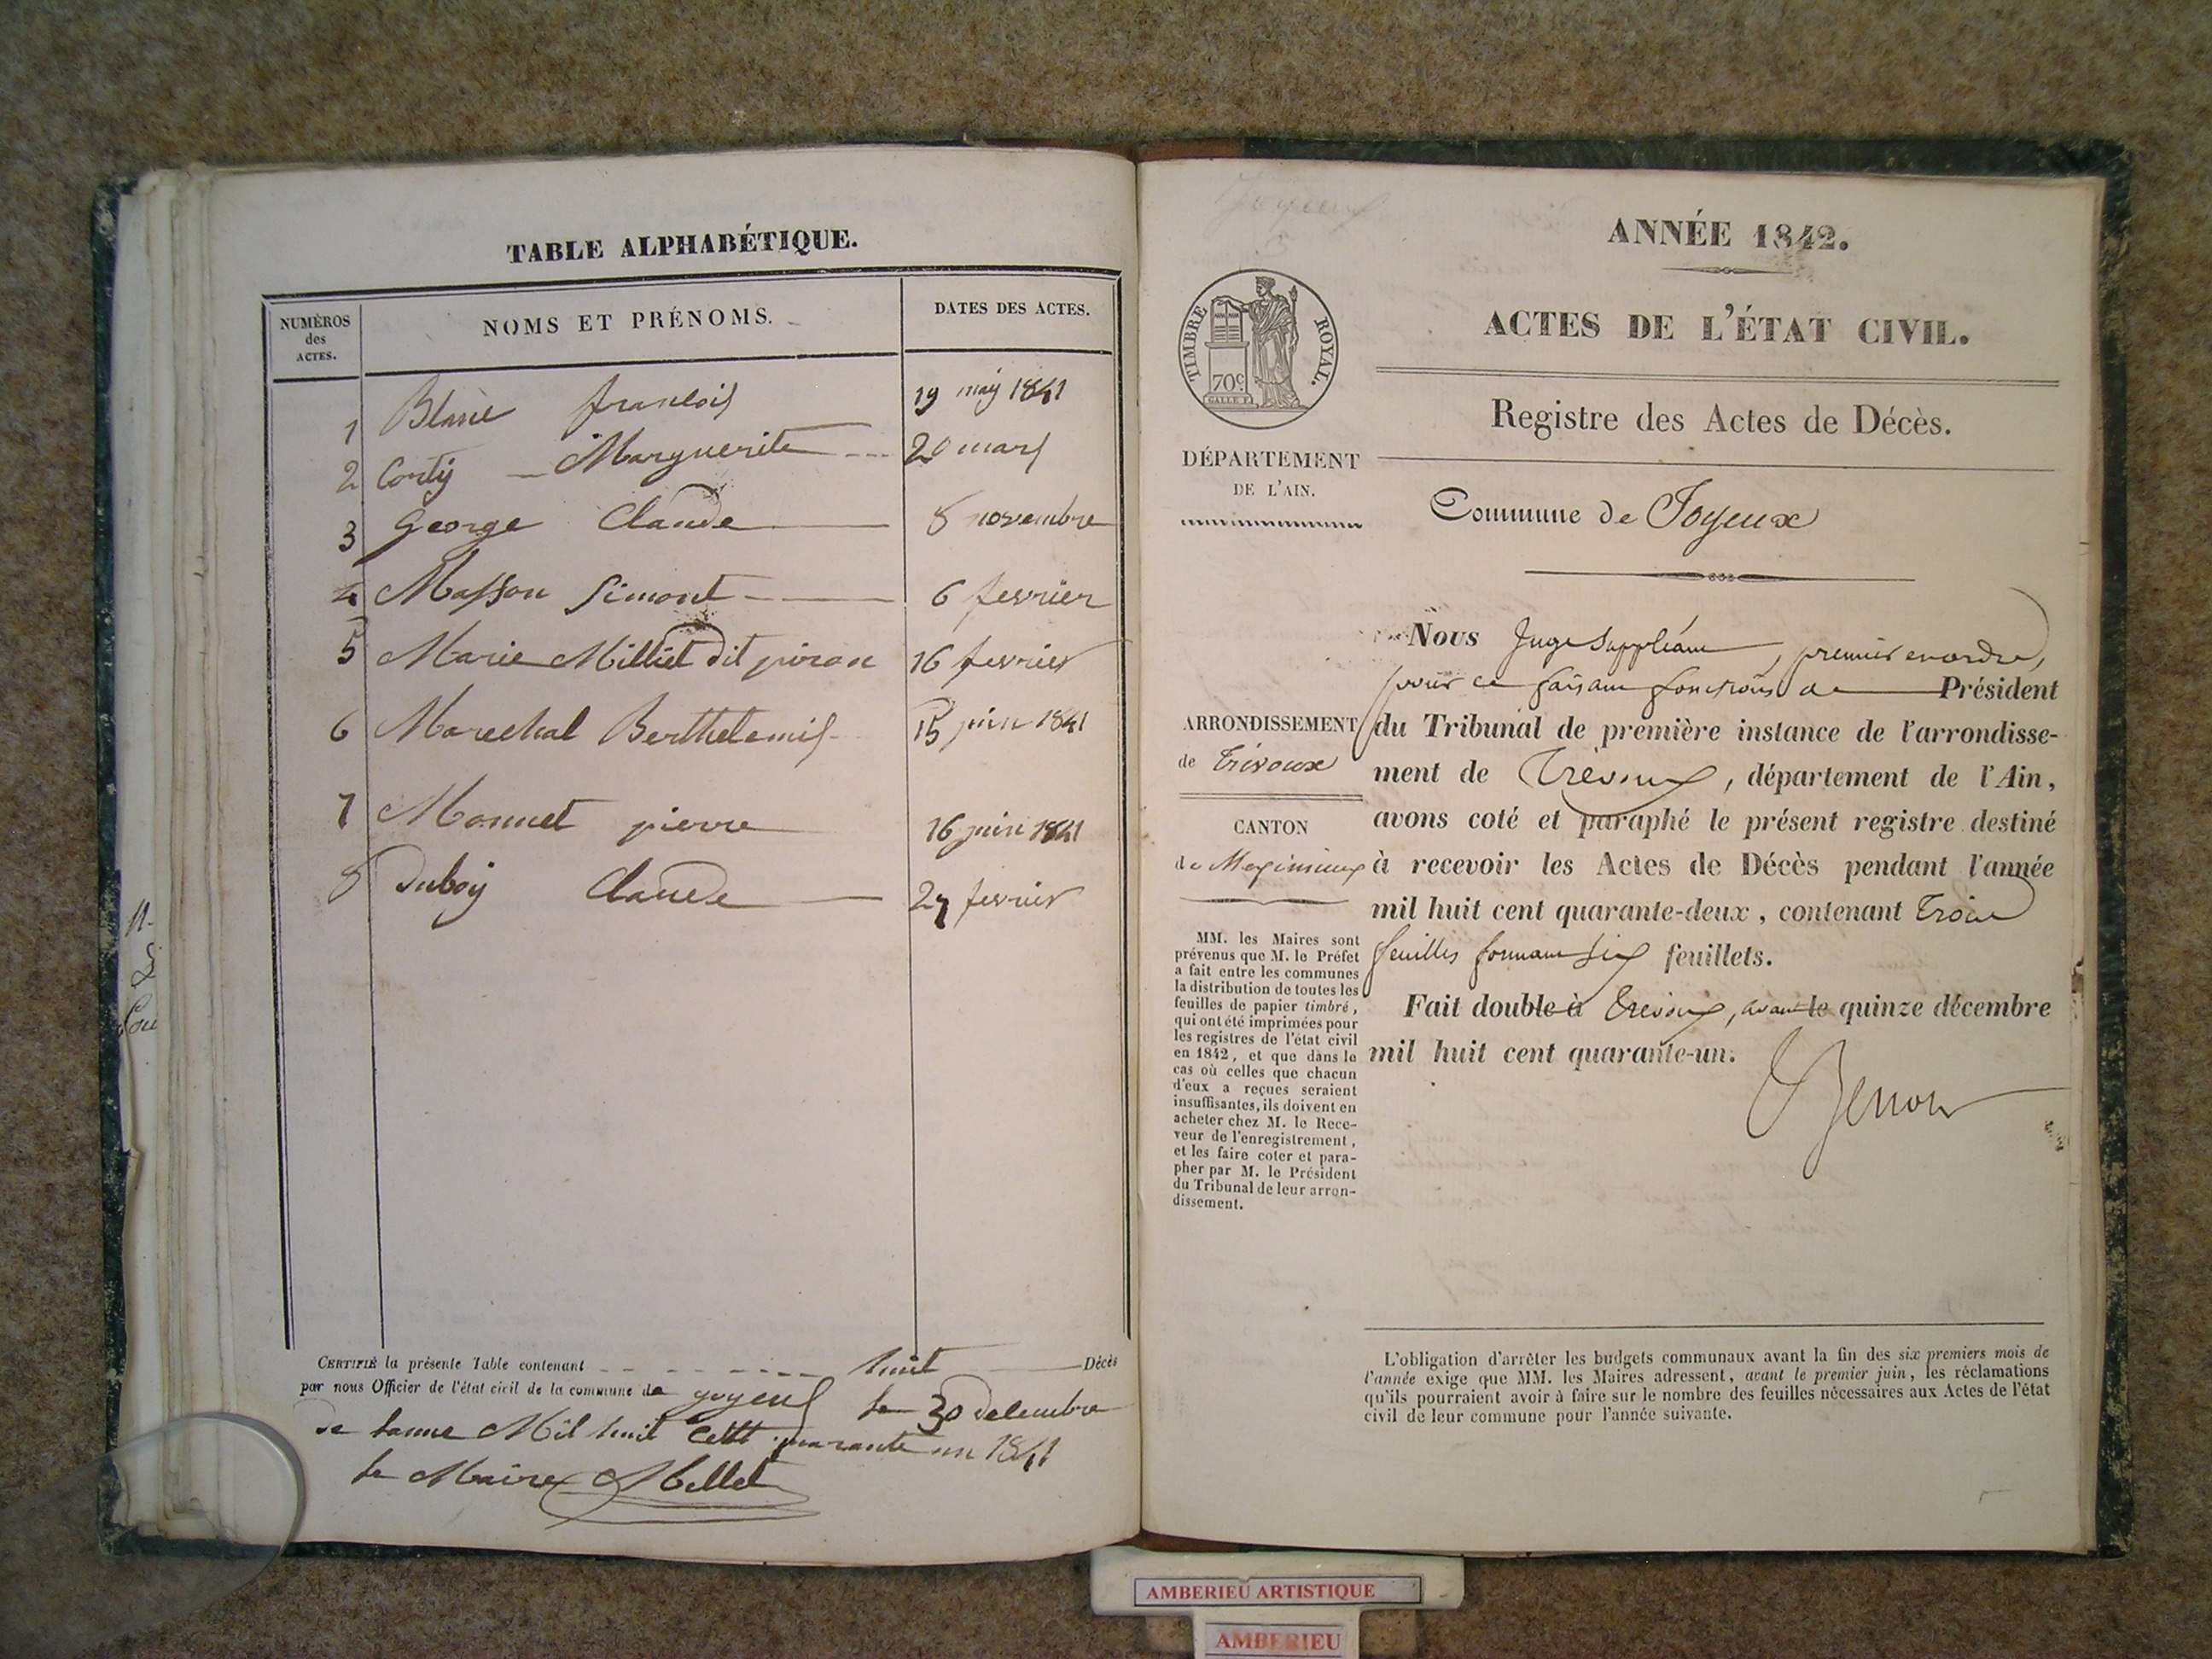 TABLE ALPHABÉTIQUE.
NUMÉROS des ACTES.
NOMS ET PRÉNOMS.
DATES DES ACTES.
1 françois 19 maij 1841
2 Marguerite 20 mars
3 George Claude 8 novembre
4 Masson Simont 6 fevrier
5 Marie Milliet dit piron 16 fevrier
6 Marechal Berthelemis 15 juin 1841
7 Monnet pierre 16 juin 1841
8 duboij Claude 27 fevrier
CERTIFIÉ la présente Table contenant huit Décès
par nous Officier de l'état civil de la commune de joyeux le 30 decembre
de lanne Mil huit cent quarante un 1841
le Maire Millet
ANNÉE 1842.
ACTES DE L'ÉTAT CIVIL.
Registre des Actes de Décès.
Commune de Joyeux
TIMBRE ROYAL.
70c.
DÉPARTEMENT
DE L'AIN.
ARRONDISSEMENT
de Trévoux
CANTON
de Meximieux
MM. les Maires sont
prévenus que M. le Préfet
a fait entre les communes
la distribution de toutes les
feuilles de papier timbré,
qui ont été imprimées pour
les registres de l'état civil
en 1842, et que dans le
cas où celles que chacun
d'eux a reçues seraient
insuffisantes, ils doivent en
acheter chez M. le Rece-
veur de l'enregistrement,
et les faire coter et para-
pher par M. le Président
du Tribunal de leur arron-
dissement.
Nous Juge Suppléant, premier en ordre,
pour ce faisant fonctions de Président
du Tribunal de première instance de l'arrondisse-
ment de Trévoux, département de l'Ain,
avons coté et paraphé le présent registre destiné
à recevoir les Actes de Décès pendant l'année
mil huit cent quarante-deux, contenant Trois
feuilles formant six feuillets.
Fait double à Trévoux, avant le quinze décembre
mil huit cent quarante-un.
L'obligation d'arrêter les budgets communaux avant la fin des six premiers mois de
l'année exige que MM. les Maires adressent, avant le premier juin, les réclamations
qu'ils pourraient avoir à faire sur le nombre des feuilles nécessaires aux Actes de l'état
civil de leur commune pour l'année suivante.
AMBERIEU ARTISTIQUE
AMBERIEU